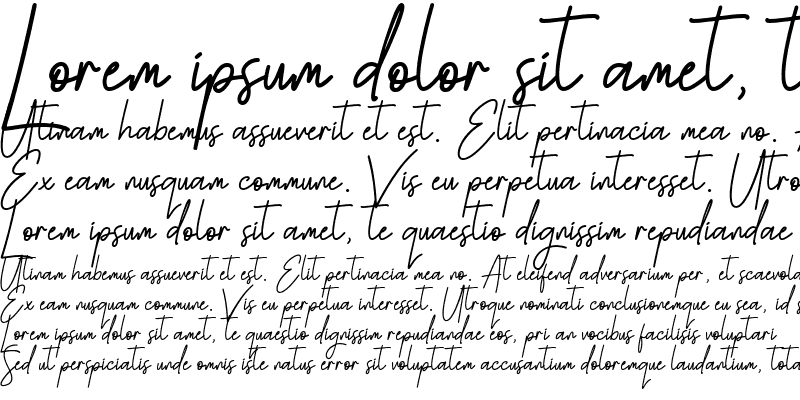 Lorem ipsum dolor sit amet, t
Utinam habemus assueverit et est. Elit pertinacia mea no.
Ex eam nusquam commune. Vis eu perpetua interesset. Utro
Lorem ipsum dolor sit amet, te quaestio dignissim repudiandae
Utinam habemus assueverit et est. Elit pertinacia mea no. At eleifend adversarium per, et scaevola
Ex eam nusquam commune. Vis eu perpetua interesset. Utroque nominati conclusionemque eu sea, id s
Lorem ipsum dolor sit amet, te quaestio dignissim repudiandae eos, pri an vocibus facilisis voluptari
Sed ut perspiciatis unde omnis iste natus error sit voluptatem accusantium doloremque laudantium, tota